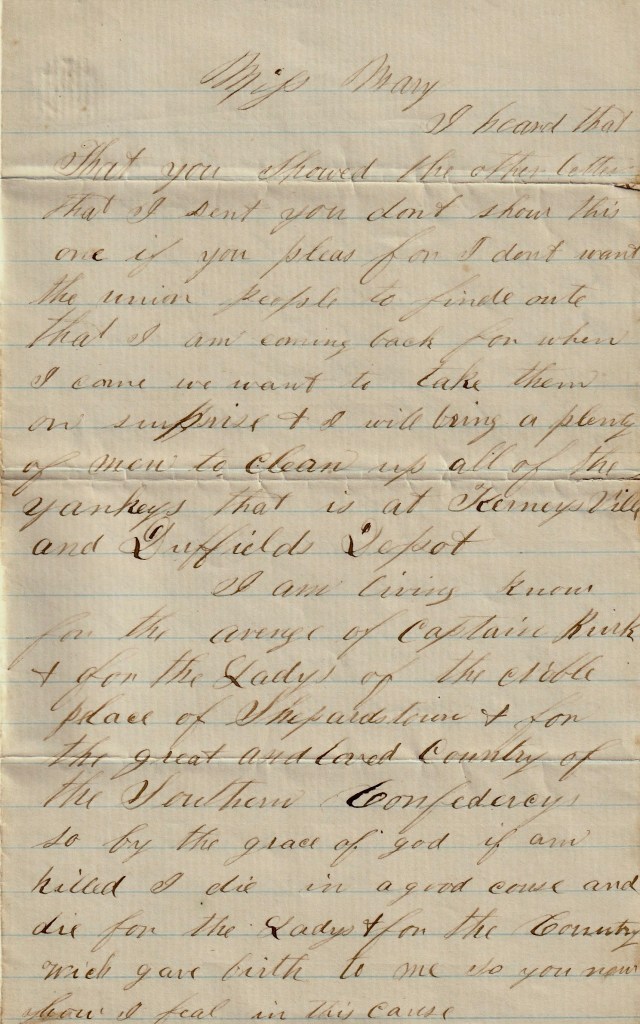 Miss Mary
I heard that
That you showed the other letter
that I sent you dont show this
one if you pleas for I dont want
the union people to finde oute
that I am coming back for when
I come we want to take them
on surprise & I will bring a plenty
of men to clean up all of the
yankeys that is at Kerneysville
and Duffields Depot
I am living know
for the avenge of Captain Burk
& for the Ladys of the noble
place of Shepardstown & for
the great and loved Country of
the Southern Confedercys
so by the grace of god if am
killed I die in a good couse and
die for the Ladys & for the Country
wich gave birth to me so you now
how I feal in this cause